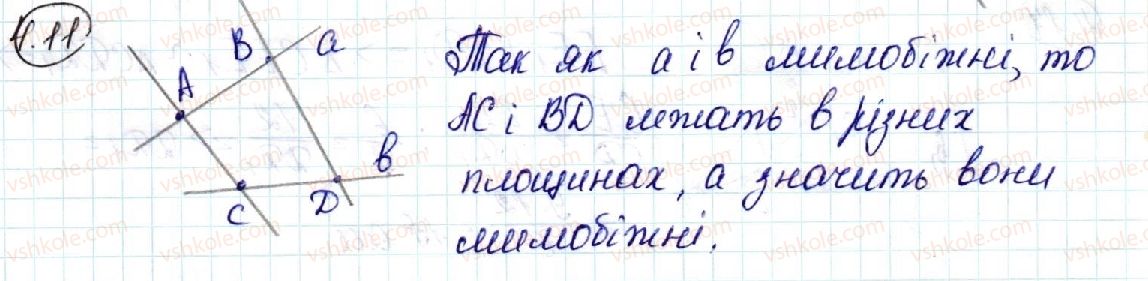 4.11
B a
A
в
C D
Так як а і в мимобіжні, то
АС і BD лежать в різних
площинах, а значить вони
мимобіжні.